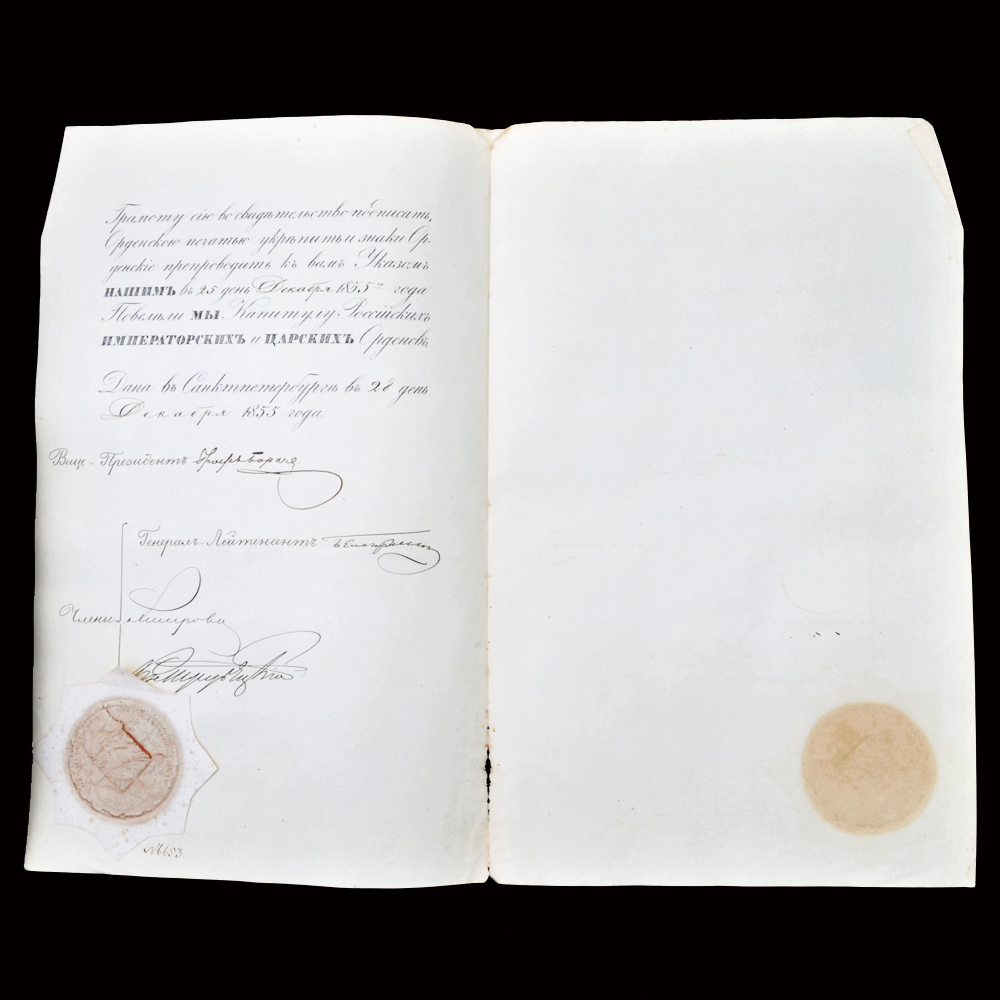 Грамоту сію во свидѣтельство подписать,
Орденскою печатью укрѣпить и знаки Ор-
денскіе препроводить къ вамъ Указомъ
НАШИМЪ въ 25 день Декабря 1855 года
Повелѣли МЫ Капитулу Россійскихъ
ИМПЕРАТОРСКИХЪ и ЦАРСКИХЪ Орденовъ
Дана въ Санктпетербургѣ въ 28 день
Декабря 1855 года
Вице-Президентъ Графъ Борхъ
Генералъ-Лейтенантъ
Члены
№ 653